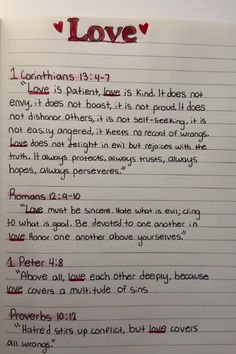 Love
1 Corinthians 13:4-7
"Love is patient, love is kind. It does not
envy, it does not boast, it is not proud. It does
not dishonor others, it is not self-seeking, it is
not easily angered, it keeps no record of wrongs.
Love does not delight in evil but rejoices with the
truth. It always protects, always trusts, always
hopes, always perseveres."
Romans 12:9-10
"Love must be sincere. Hate what is evil; cling
to what is good. Be devoted to one another in
love. Honor one another above yourselves."
1 Peter 4:8
"Above all, love each other deeply, because
love covers a multitude of sins
Proverbs 10:12
"Hatred stirs up conflict, but love covers
all wrongs."